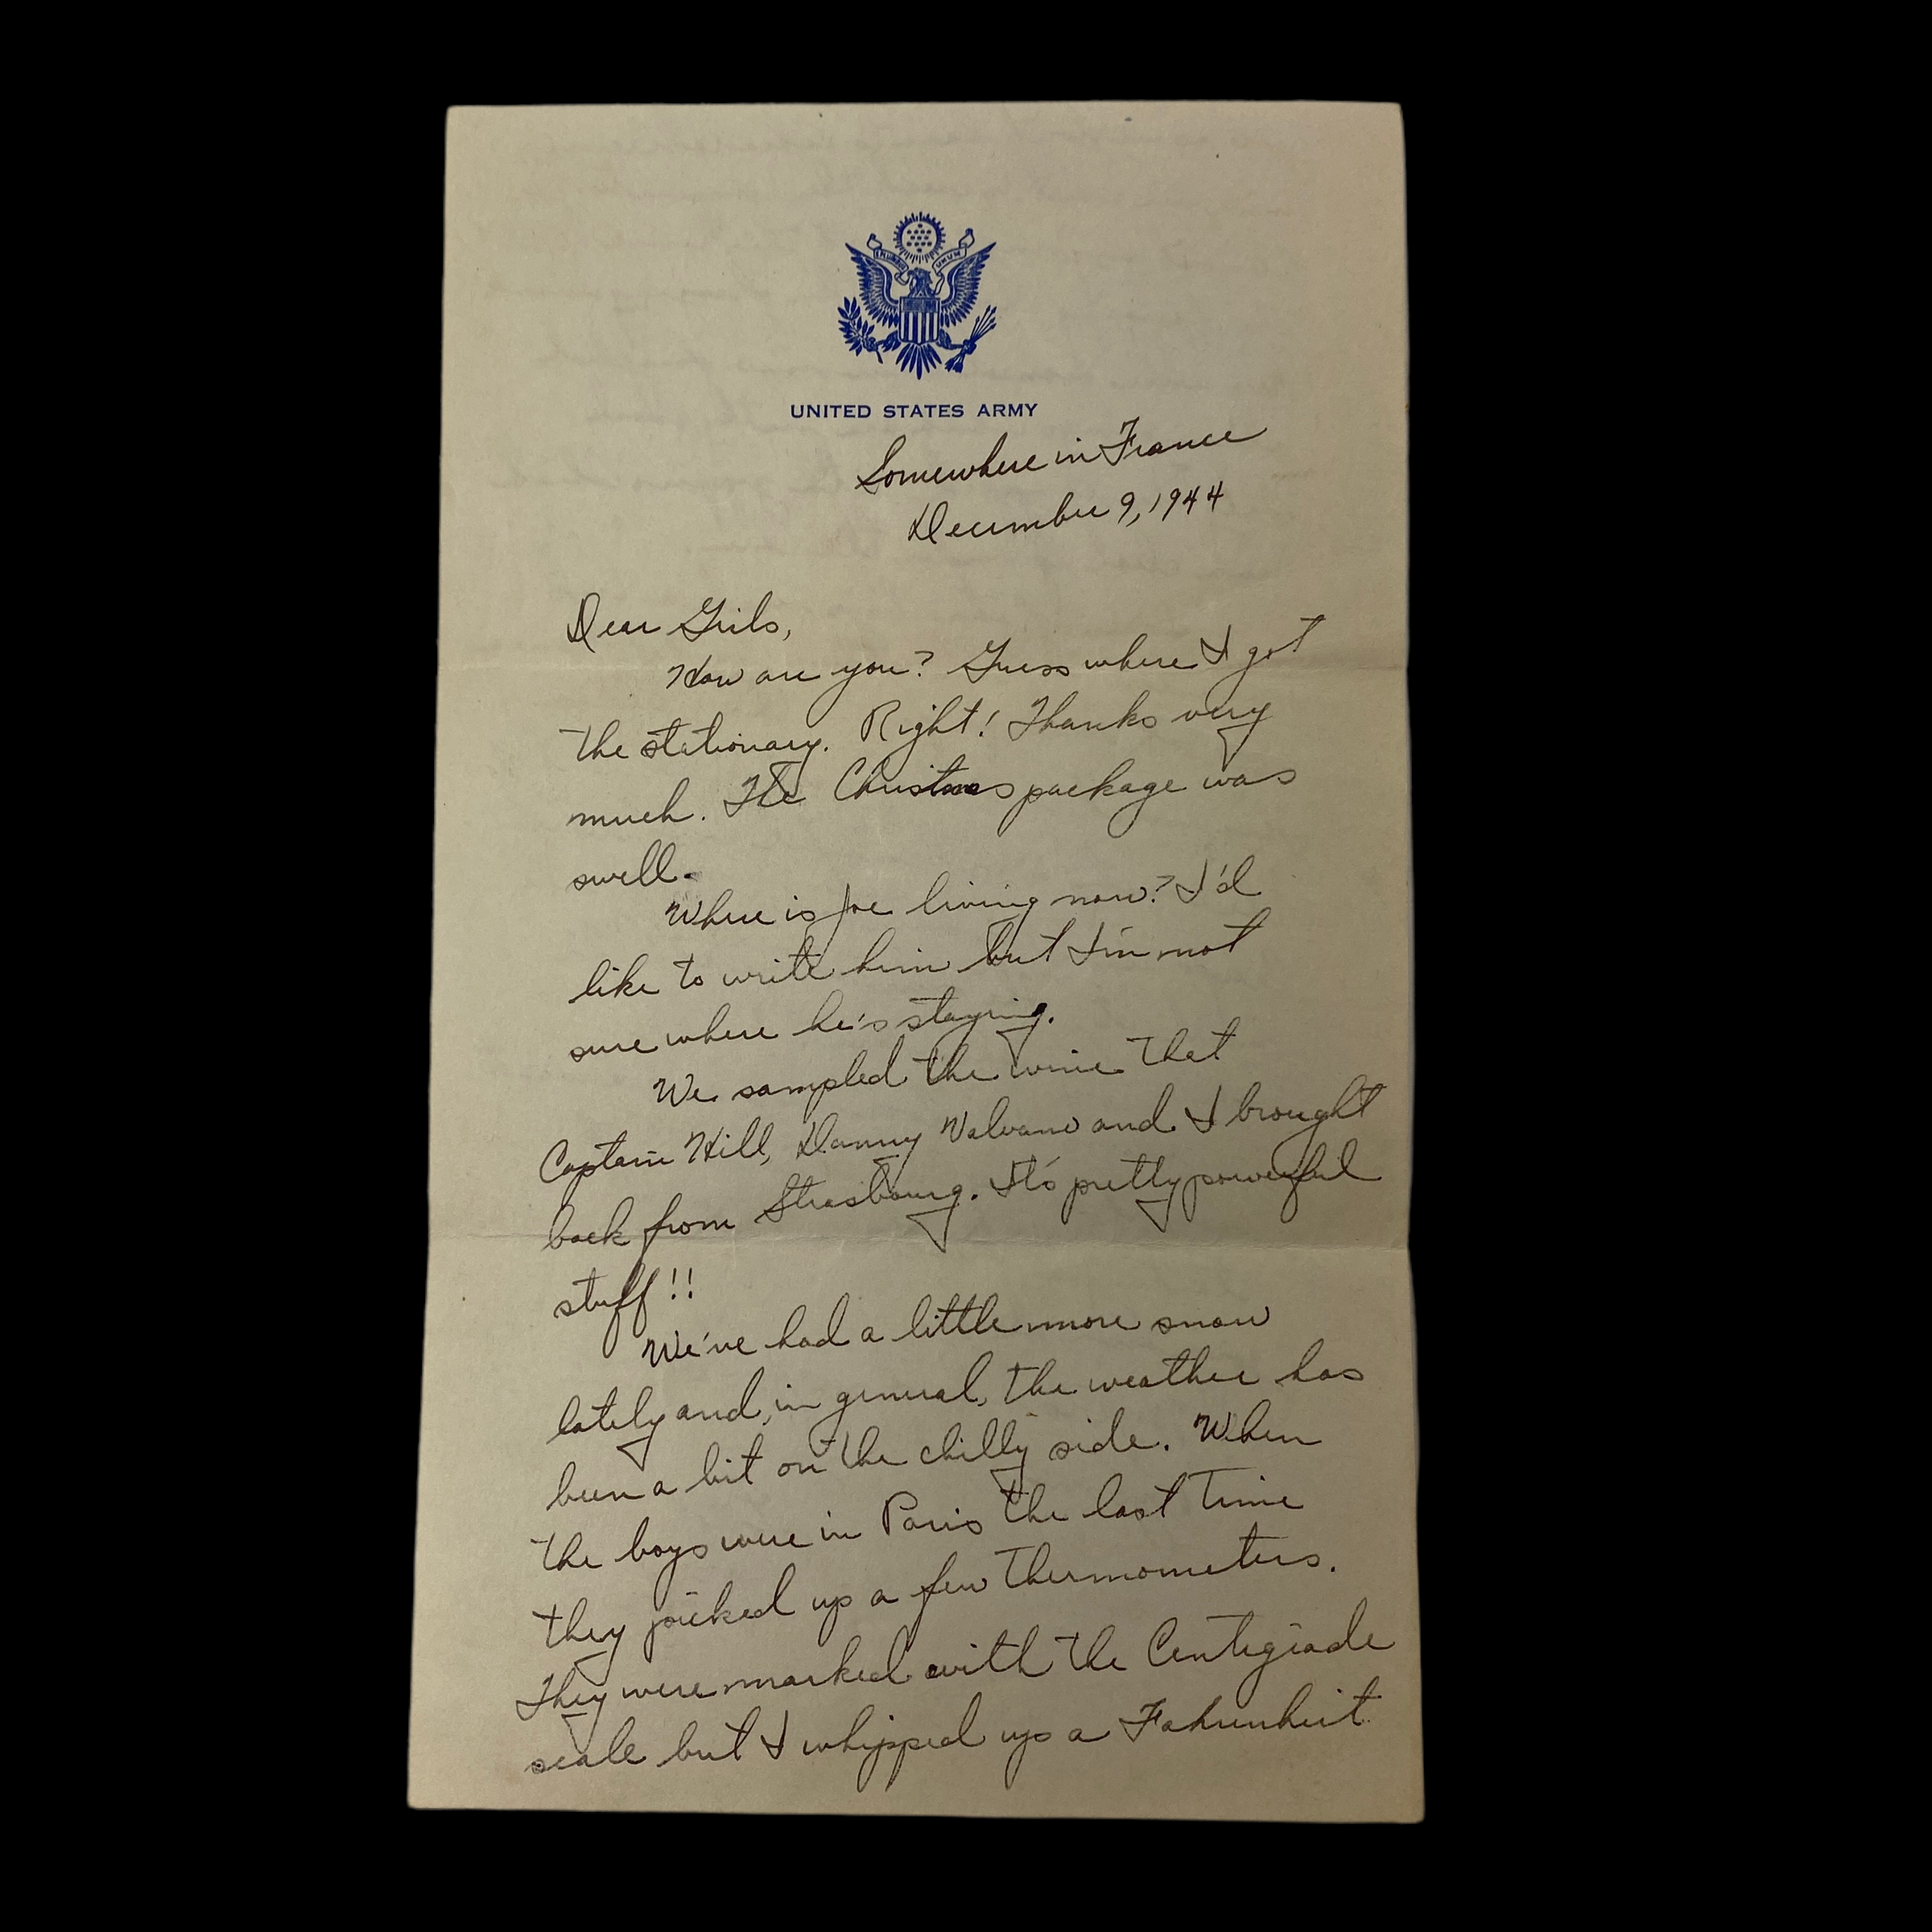 E PLURIBUS UNUM
UNITED STATES ARMY
Somewhere in France
December 9, 1944
Dear Girls,
How are you? Guess where I got
the stationary. Right! Thanks very
much. The Christmas package was
swell.
Where is Joe living now? I'd
like to write him but I'm not
sure where he's staying.
We sampled the wine that
Captain Hill, Danny Valvano and I brought
back from Strasbourg. It's pretty powerful
stuff!!
We've had a little more snow
lately and, in general, the weather has
been a bit on the chilly side. When
the boys were in Paris the last time
they picked up a few thermometers.
They were marked with the Centigrade
scale but I whipped up a Fahrenheit